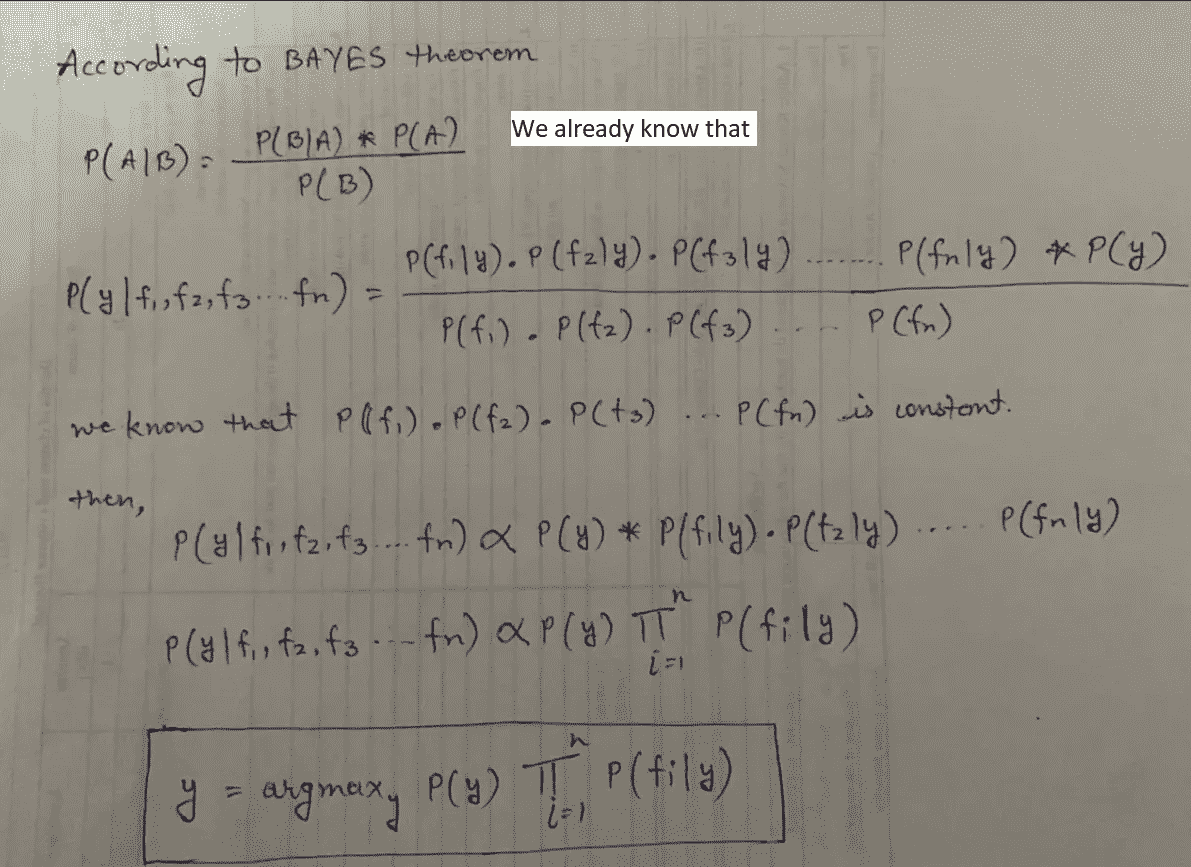 According to BAYES theorem
P(A|B) = P(B|A) * P(A) / P(B)
We already know that
P(y|f₁,f₂,f₃....fn) = P(f₁|y). P(f₂|y). P(f₃|y) ........ P(fn|y) * P(y) / P(f₁). P(f₂). P(f₃) .... P(fn)
we know that P(f₁). P(f₂). P(f₃) ... P(fn) is constant.
then,
P(y|f₁,f₂,f₃....fn) ∝ P(y) * P(f₁|y). P(f₂|y) ..... P(fn|y)
P(y|f₁,f₂,f₃....fn) ∝ P(y) ∏ⁿᵢ₌₁ P(fi|y)
y = argmaxy P(y) ∏ⁿᵢ₌₁ P(fi|y)